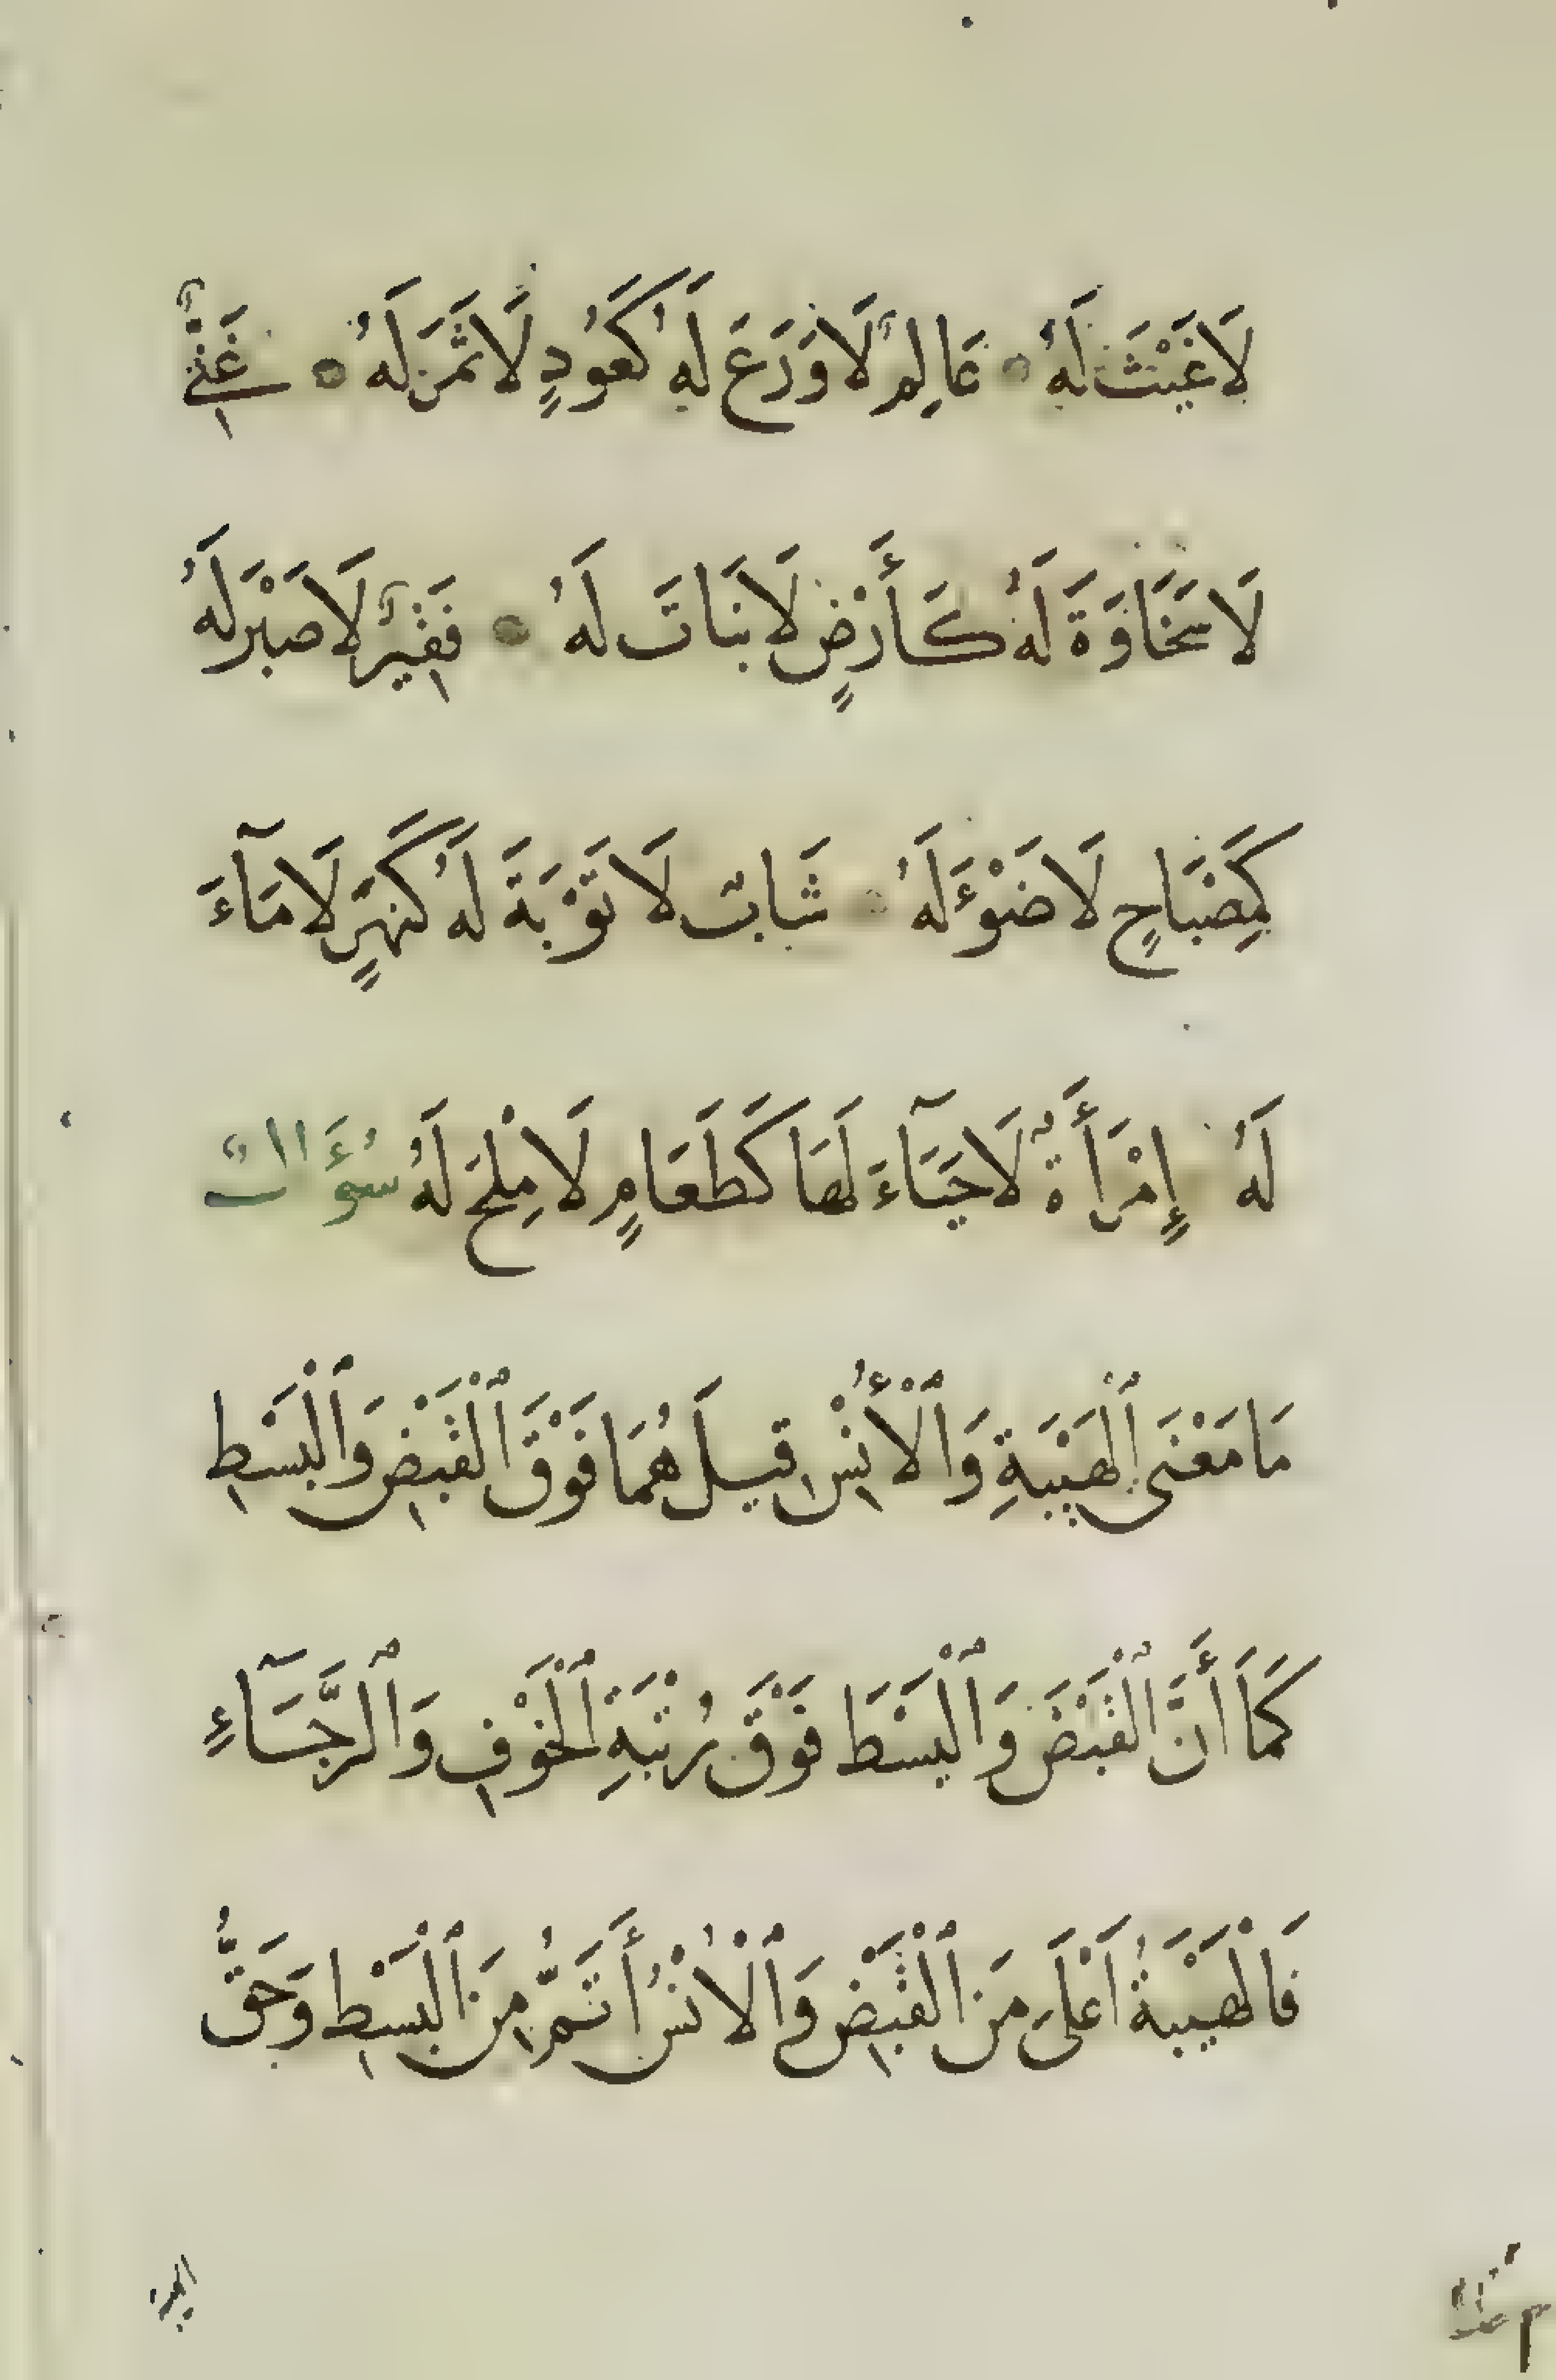 لَا غَيْثَ لَهُ عَالِمٌ لَا وَرَعَ لَهُ كَعُودٍ لَا ثَمَنَ لَهُ غَنِيٌّ
لَا سَخَاوَةَ لَهُ كَأَرْضٍ لَا نَبَاتَ لَهُ فَقِيرٌ لَا صَبْرَ لَهُ
كَمِصْبَاحٍ لَا ضَوْءَ لَهُ شَابٌ لَا تَوْبَةَ لَهُ كَنَهَرٍ لَا مَآءَ
لَهُ إِمْرَأَةٌ لَا حَيَآءَ لَهَا كَطَعَامٍ لَا مِلْحَ لَهُ سُؤَالٌ
مَا مَعْنَى ٱلْهَيْبَةِ وَٱلْأُنْسِ قِيلَ هُمَا فَوْقَ ٱلْقَبْضِ وَٱلْبَسْطِ
كَمَا أَنَّ ٱلْقَبْضَ وَٱلْبَسْطَ فَوْقَ رُتْبَةِ ٱلْخَوْفِ وَٱلرَّجَآءِ
فَالْهَيْبَةُ اَعْلَى مِنَ ٱلْقَبْضِ وَٱلْاُنْسُ أَتَمُّ مِنَ ٱلْبَسْطِ وَحَقُّ